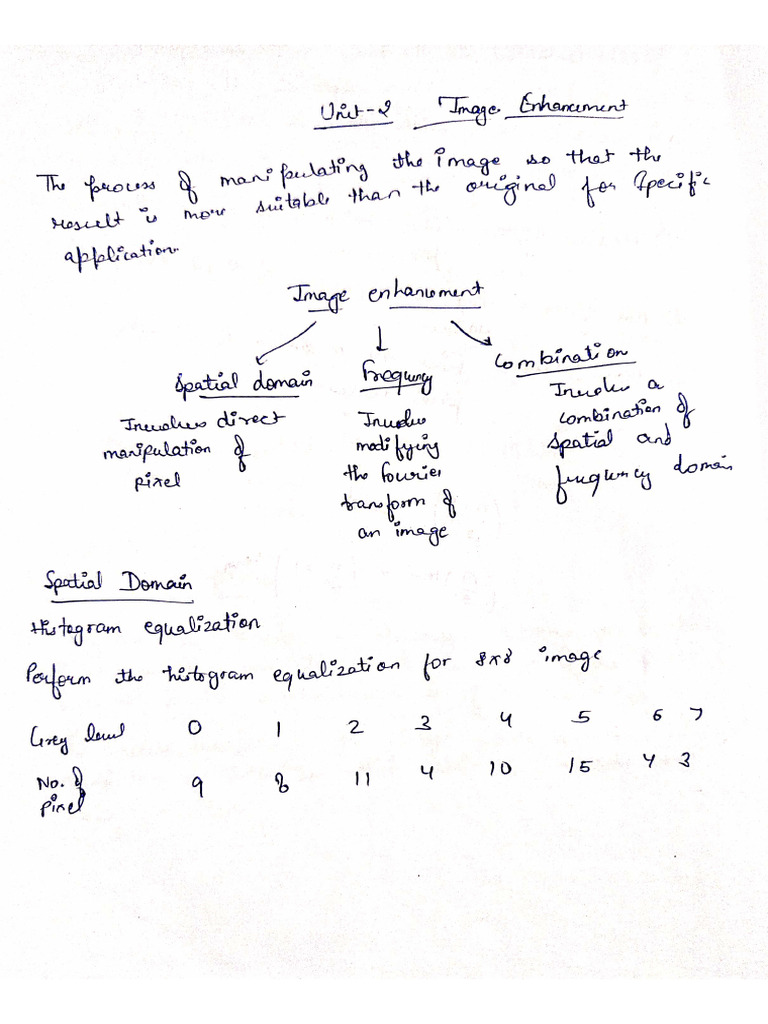 Unit-2 Image Enhancement
The process of manipulating the image so that the
result is more suitable than the original for specific
application.
Image enhancement
Spatial domain
Involves direct
manipulation of
pixel
Frequency
Involves
modifying
the fourier
transform of
an image
Combination
Involves a
combination of
spatial and
frequency domain
Spatial Domain
Histogram equalization
Perform the histogram equalization for 8x8 image
Grey level 0 1 2 3 4 5 6 7
No. of 9 8 11 4 10 15 4 3
pixel